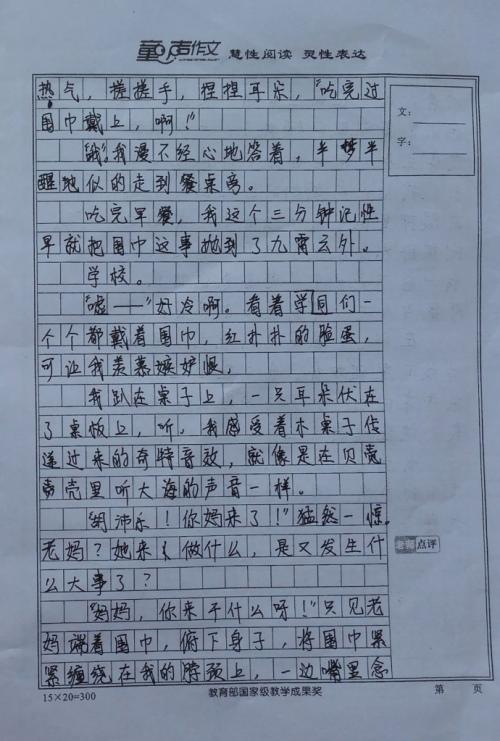 童声作文 慧性阅读 灵性表达
热气，搓搓手，捏捏耳朵，“吃完过
围巾戴上，啊！”
“哦。”我漫不经心地答着，半梦半
醒地似的走到餐桌旁。
吃完早餐，我这个三分钟记性
早就把围巾这事抛到了九霄云外。
学校。
“嘘——”好冷啊。看着学同们一
个个都戴着围巾，红扑扑的脸蛋，
可让我羡慕嫉妒恨，
我趴在桌子上，一只耳朵伏在
了桌板上，听，我感受着木桌子传
递过来的奇特音效，就像是在贝壳
壳里听大海的声音一样。
“沛乐！你妈来了！”猛然一惊。
老妈？她来做什么，是又发生什
么大事了？
“妈妈，你来干什么呀！”只见老
妈端着围巾，俯下身子，将围巾紧
紧缠绕在我的脖颈上，一边嘴里念
文：
字：
老师点评
15×20=300
教育部国家级教学成果奖
第 页